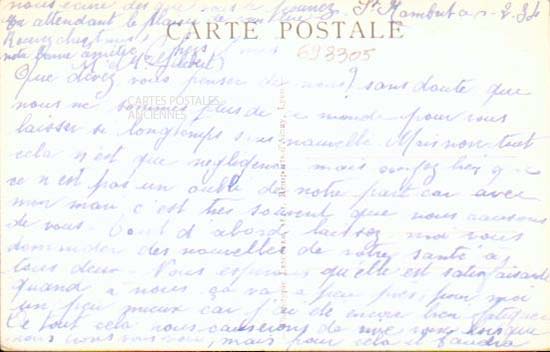 nous écrire dès que vous le pourrez. St Rambert le 2-34
En attendant le plaisir de
CARTE POSTALE
Recevez chers amis
notre bonne amitié
693305
Que devez vous penser de nous? sans doute que
nous ne sommes plus de ce monde pour vous
CARTES POSTALES
ANCIENNES
laisser si longtemps sans nouvelle. Mais non tout
cela n'est que négligence mais croyez bien que
ce n'est pas un oubli de notre part car avec
mon mari c'est très souvent que nous causons
de vous. Tout d'abord laissez moi vous
demander des nouvelles de votre santé à
tous deux. Nous espérons qu'elle est satisfaisante
quand à nous ça va à peu près pour moi
un peu mieux car j'ai été encore bien fatiguée
De tout cela nous causerons de vive voix lorsque
nous vous, mais pour cela il faudra